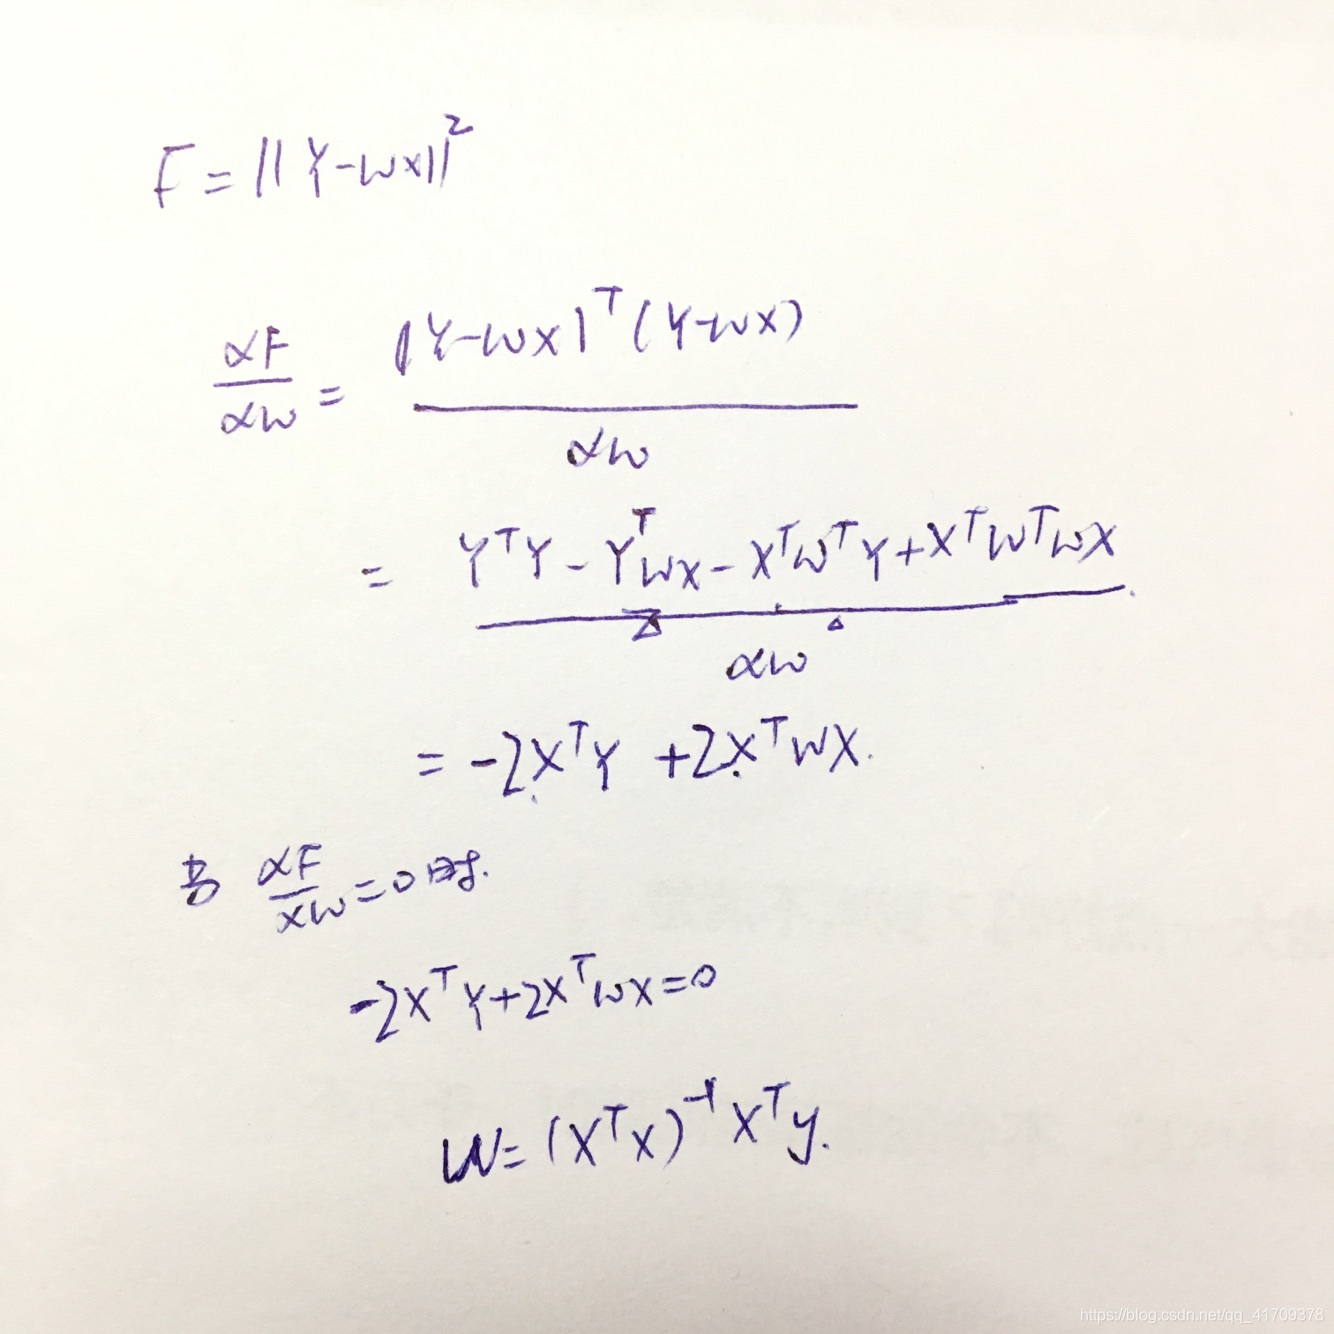 F = ||Y-wx||²
αF/αw = (Y-wx)ᵀ(Y-wx)/αw
= YᵀY - Yᵀwx - xᵀwᵀY + xᵀwᵀwx/αw
= -2XᵀY + 2XᵀWX.
当 αF/αw = 0 时.
-2XᵀY + 2Xᵀwx = 0
W = (XᵀX)⁻¹Xᵀy.
https://blog.csdn.net/qq_41709378